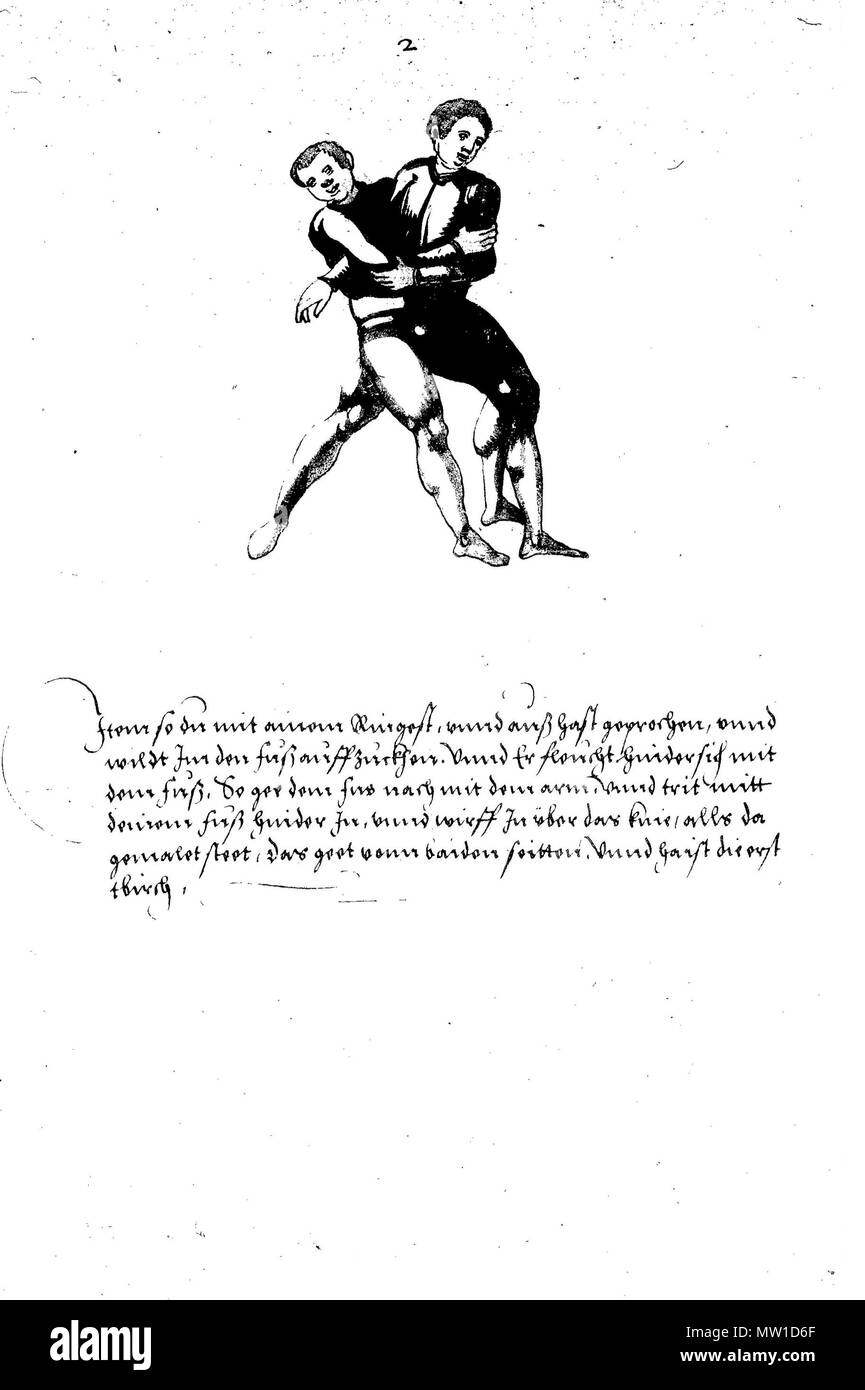 2
Item so du mit ainem Ringest, vnnd auß hast geprochen, vnnd
wildt Im den fuß auff zuckhen. Vnnd Er fleucht hindersich mit
dem fuß. So gee dem fus nach mit dem arm. vnnd trit mitt
deinem fuß hinder In, vnnd wirff In über das knie, alls da
gemalet steet, Das geet vonn baiden seitten. Vnnd haist die erst
a
a
alamy
Image ID: MW1D6F
www.alamy.com